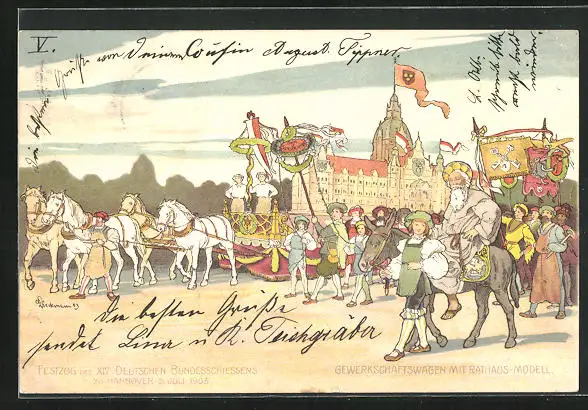 V.
Grüße von Deinem Cousin August Tippner.
Die besten Grüße
sendet Lina u. K. Teichgräber
FESTZUG DES XIV. DEUTSCHEN BUNDESSCHIESSENS
ZU HANNOVER 5. JULI 1903
GEWERKSCHAFTSWAGEN MIT RATHAUS-MODELL.